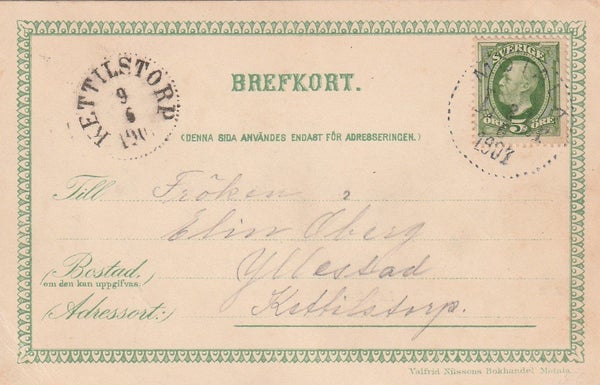 BREFKORT.
(DENNA SIDA ANVÄNDES ENDAST FÖR ADRESSERINGEN.)
KETTILSTORP
9
6
190
SVERIGE
5
ÖRE ÖRE
1901
Till Fröken
Elin Öberg
Yllestad
(Bostad,
om den kan uppgifvas.)
Kettilstorp.
(Adressort:)
Valfrid Nilssons Bokhandel Motala.